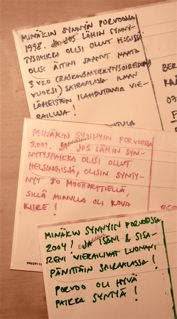 MINÄKIN SYNNYIN PORVOOSSA
1998. JA JOS LÄHIN SYNNY-
TYSPAIKKA OLISI OLLUT
OLIS ÄITINI SAANUT MAATA
3 VKO (RASKAUSMYRKYTYKSEN
VUOKSI) SAIRAALASSA ILMAN
LÄHEISTEN ILAHDUTTAVIA VIE-
RAILUJA!
MINÄKIN SYNNYIN PORVOOSSA
2001. JA JOS LÄHIN SYN-
NYTYSPAIKKA OLISI OLLUT
HELSINGISSÄ, OLISIN SYNTY-
NYT MOOTTORITIELLÄ,
SILLÄ MINULLA OLI KOVA
KIIRE!
MINÄKIN SYNNYIN PORVOOSSA
2004! JA ISÄNI & SISA-
RENI VIERAILIVAT LUONANI
PÄIVITTÄIN SAIRAALASSA!
PORVOO OLI HYVÄ
PAIKKA SYNTYÄ!